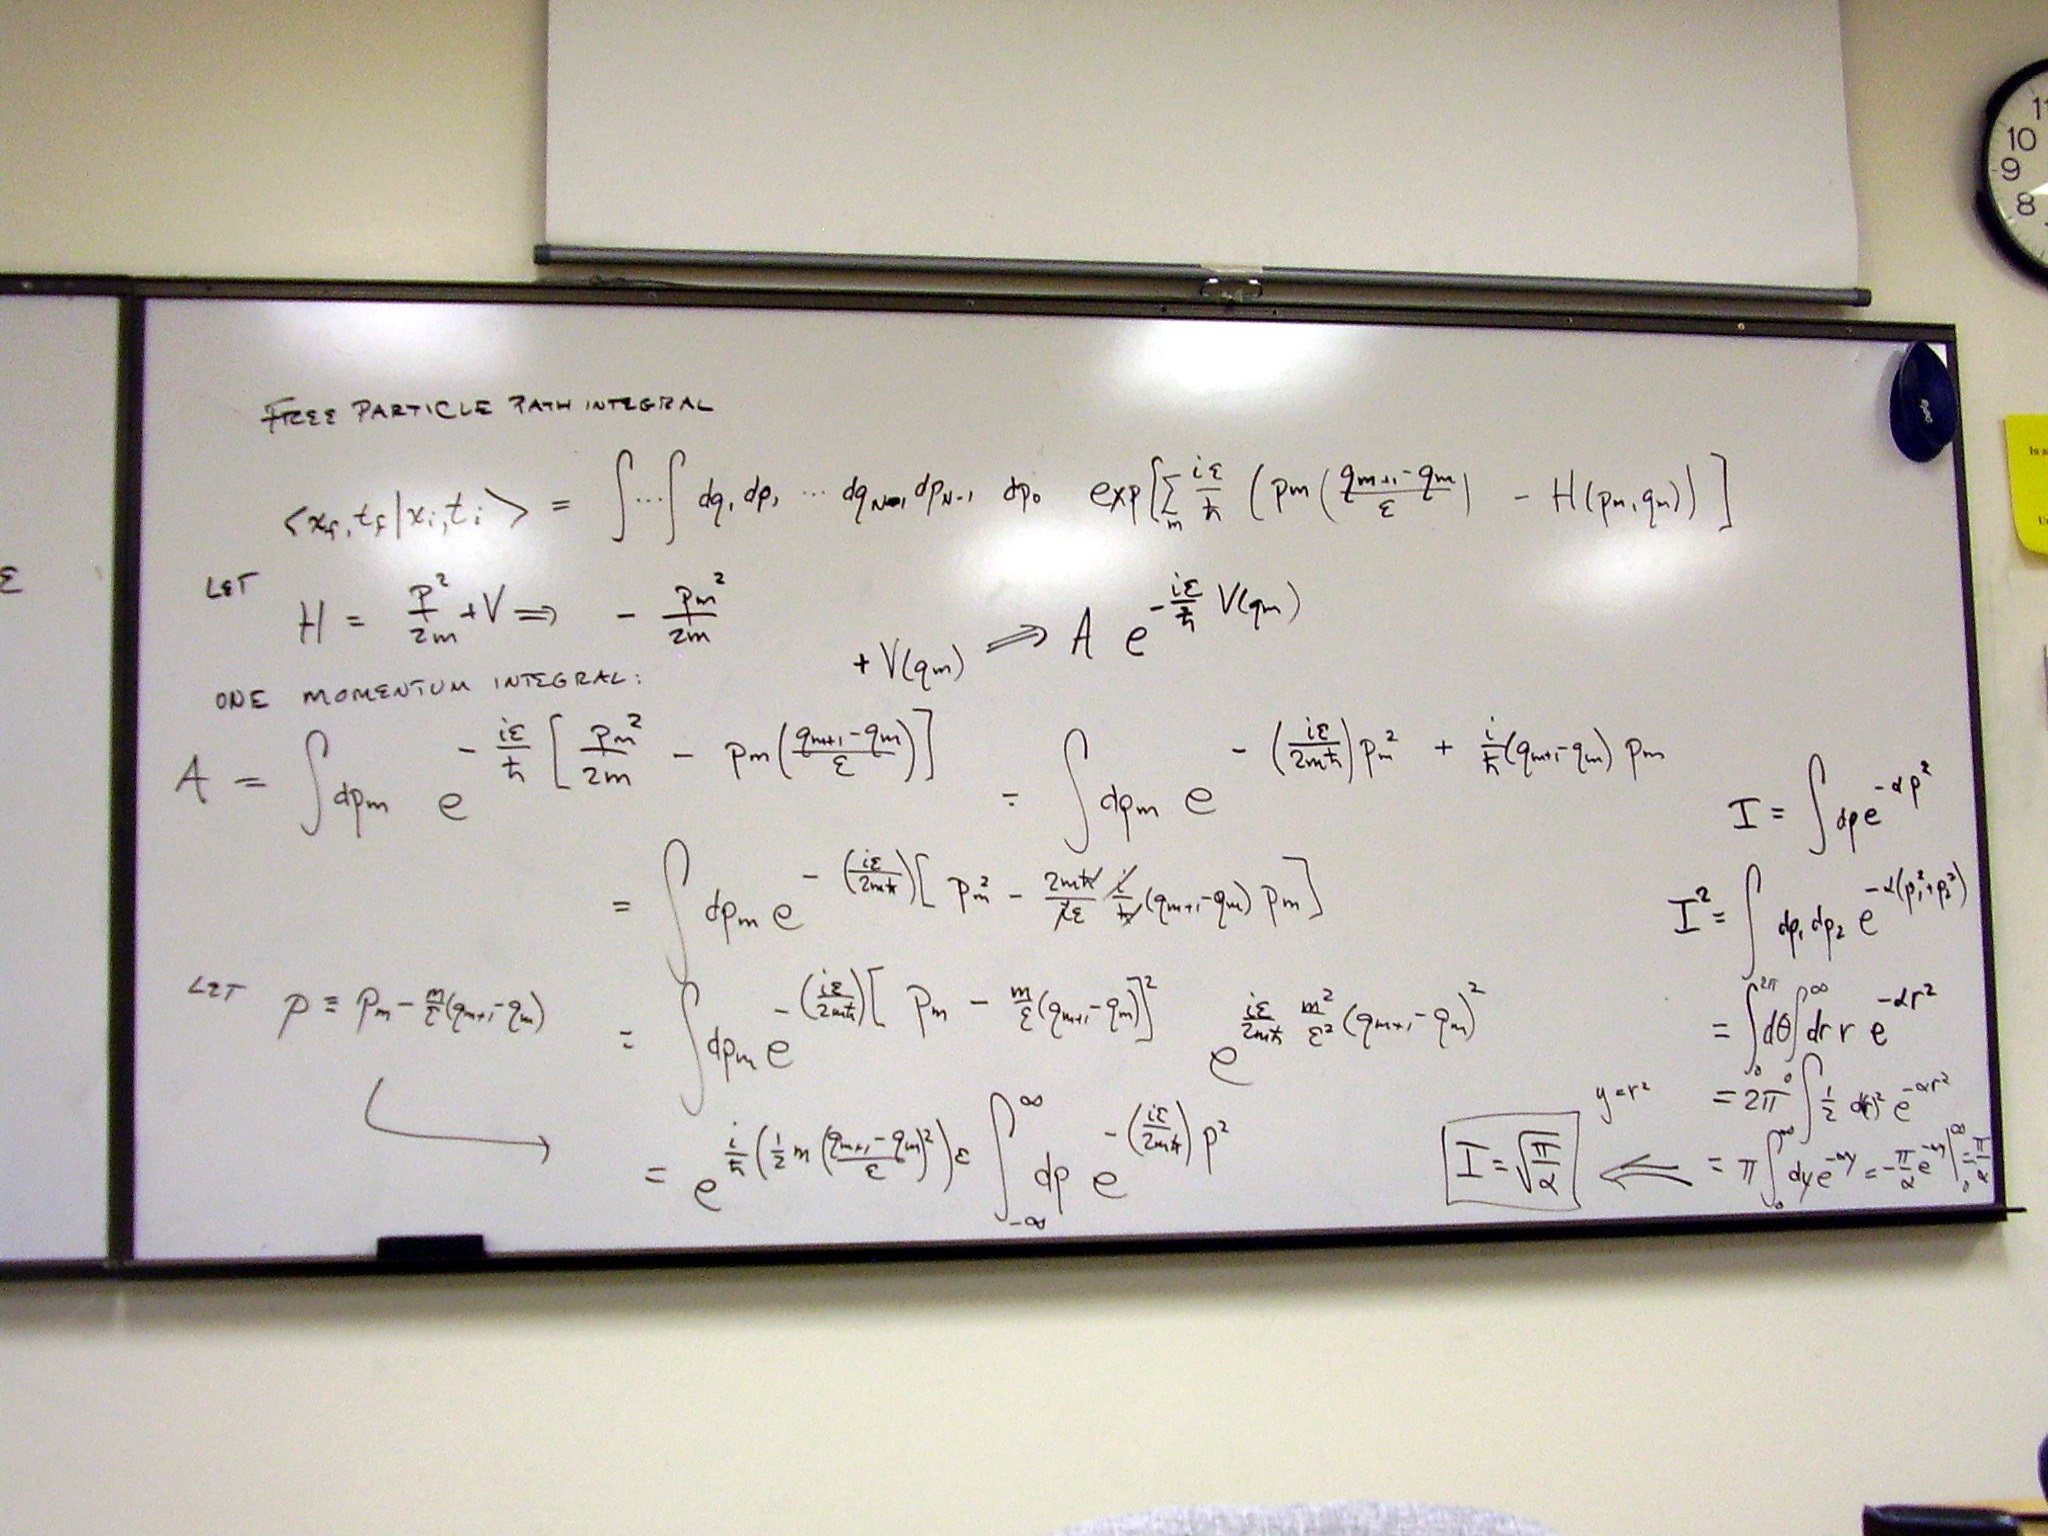 FREE PARTICLE PATH INTEGRAL
⟨x_f, t_f | x_i, t_i⟩ = ∫...∫ dq_1 dp_1 ... dq_{N-1} dp_{N-1} dp_0 exp[∑_m iε/ħ (p_m (q_{m+1} - q_m / ε) - H(p_m, q_m))]
LET H = p²/2m + V ⇒ - p_m²/2m
+ V(q_m) ⇒ A e^{-iε/ħ V(q_m)}
ONE MOMENTUM INTEGRAL:
A = ∫ dp_m e^{-iε/ħ [p_m²/2m - p_m (q_{m+1} - q_m / ε)]} = ∫ dp_m e^{-(iε/2mħ) p_m² + i/ħ (q_{m+1} - q_m) p_m}
= ∫ dp_m e^{-(iε/2mħ)[p_m² - 2mħ/iε i/ħ (q_{m+1} - q_m) p_m]}
LET p ≡ p_m - m/ε (q_{m+1} - q_m)
= ∫ dp_m e^{-(iε/2mħ)[p_m - m/ε (q_{m+1} - q_m)]²} e^{iε/2mħ m²/ε² (q_{m+1} - q_m)²}
= e^{i/ħ (½ m (q_{m+1} - q_m / ε)²) ε} ∫_{-∞}^{∞} dp e^{-(iε/2mħ) p²}
I = ∫ dp e^{-αp²}
I² = ∫ dp_1 dp_2 e^{-α(p_1² + p_2²)}
= ∫_0^{2π} dθ ∫_0^∞ dr r e^{-αr²}
y = r² = 2π ∫ ½ d(r)² e^{-αr²}
= π ∫_0^∞ dy e^{-αy} = -π/α e^{-αy} |_0^∞ = π/α
⇐ I = √(π/α)
11
10
9
8